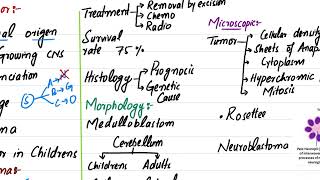 or:-
al origen
Growing CNS
enciation
S
A → X
B → G
C → O
ma
or in Childrens
mas:
Treatment → Removal by excision
→ Chemo
→ Radio
Survival
rate 75%
Histology → Prognocis
→ Genetic
Cause
Morphology:
Medulloblastom
Cerebellum
Childrens Adults
Microscopic:
Tumor → Cellular density
→ Sheets of Anap
→ Cytoplasm
→ Hyperchromic
→ Mitosis
• Rosettee
Neuroblastoma